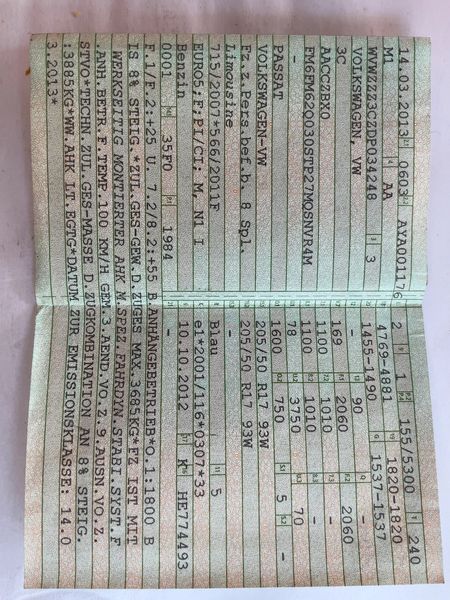 14.03.2013 0603 AYA001176 2 1 155/5300 240
M1 AA 4769-4881 1820-1820
WVWZZZ3CZDP034248 3 1455-1490 1537-1537
VOLKSWAGEN, VW - 90 -
3C 169 2060 2060
AACCZBX0 1100 1010 -
FM6FM62Q030STP27MQSNVR4M 1100 1010 -
- 78 3750 70
PASSAT 1600 750 5 -
VOLKSWAGEN-VW 205/50 R17 93W
Fz.z.Pers.bef.b. 8 Spl. 205/50 R17 93W
Limousine -
715/2007*566/2011F Blau 5
EURO5;F;PI/CI; M, N1 I e1*2001/116*0307*33
Benzin 10.10.2012 K HE774493
0001 35F0 1984 -
F.1/F.2:+25 U. 7.2/8.2:+55 B.ANHÄNGEBETRIEB*O.1:1800 B
IS 8% STEIG.*ZUL.GES-GEW.D.ZUGES MAX.3685KG*FZ IST MIT
WERKSEITIG MONTIERTER AHK M.SPEZ.FAHRDYN.STABI.SYST.F
.ANH.BETR.F.TEMP.100 KM/H GEM.3.AEND.VO.Z.9.AUSN.VO.Z.
STVO*TECHN.ZUL.GES-MASSE D.ZUGKOMBINATION AN 8% STEIG.
:3885KG*WW.AHK LT.EGTG*DATUM ZUR EMISSIONSKLASSE: 14.0
3.2013*